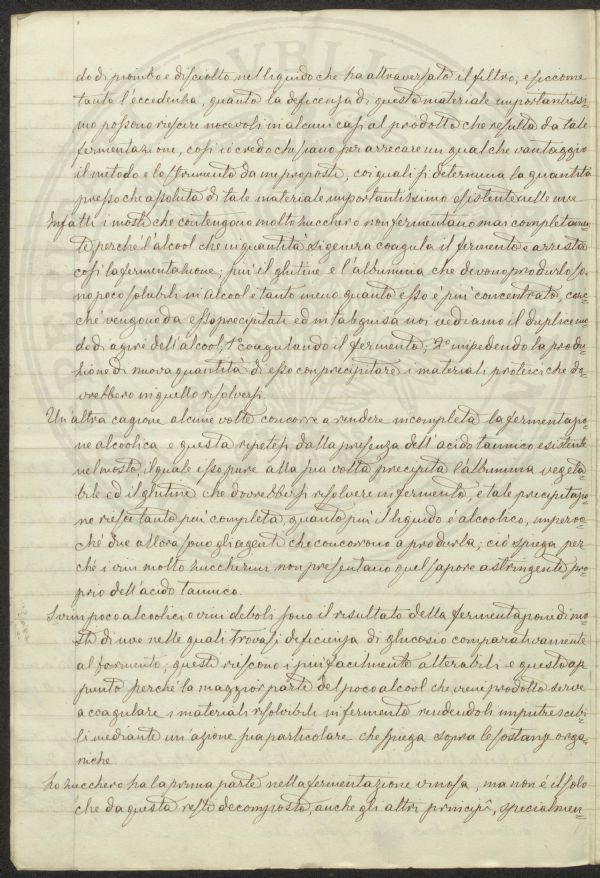 do di piombo e disciolto nel liquido che ha attraversato il filtro; e siccome
tanto l'eccedenza, quanto la deficenza di questo materiale importantissi=
mo possono riescire nocevoli in alcuni casi al prodotto che resulta da tale
fermentazione, così io credo che siano per arrecare un qualche vantaggio
il metodo e lo strumento da me proposti, coi quali si determina la quantità
pressoche assoluta di tale materiale importantissimo esistente nelle uve
Infatti i mosti che contengono molto zucchero non fermentano mai completamen=
te, perché l'alcool che in quantità si genera coagula il fermento e arresta
così la fermentazione; più il glutine e l'albumina che devono produrlo so=
no poco solubili in alcool e tanto meno quanto esso è più concentrato, cosic=
ché vengono da esso precipitati ed in tal guisa noi vediamo il duplice mo=
do di agire dell'alcool, 1º coagulando il fermento; 2º impedendo la produ=
zione di nuova quantità di esso con precipitare i materiali proteici che do=
vrebbero in quello risolversi.
Un'altra cagione alcune volte concorre a rendere incompleta la fermentazio=
ne alcoolica e questa repetesi dalla presenza dell'acido tannico esistente
nel mosto, il quale esso pure alla sua volta precipita l'albumina vegeta=
bile ed il glutine che dovrebbersi risolvere in fermento, e tale precipitazio=
ne riesce tanto più completa, quanto più il liquido è alcoolico, imperoc=
ché due allora sono gli agenti che concorrono a produrla; ciò spiega per
ché i vini molto zuccherini non presentano quel sapore astringente pro=
prio dell'acido tannico.
I vini poco alcoolici o vini deboli sono il resultato della fermentazione di mo=
sti di uve nelle quali trovasi deficienza di glucosio comparativamente
al fermento; questi riescono i più facilmente alterabili e questo ap
punto perché la maggior parte del poco alcool che vieni prodotto serve
a coagulare i materiali risolvibili in fermento rendendoli imputresci=
li mediante un'azione sua particolare che spiega sopra le sostanze orga=
niche
Lo zucchero ha la prima parte nella fermentazione vinosa, ma non è il solo
che da questa resti decomposto, anche gli altri principî, specialmen=